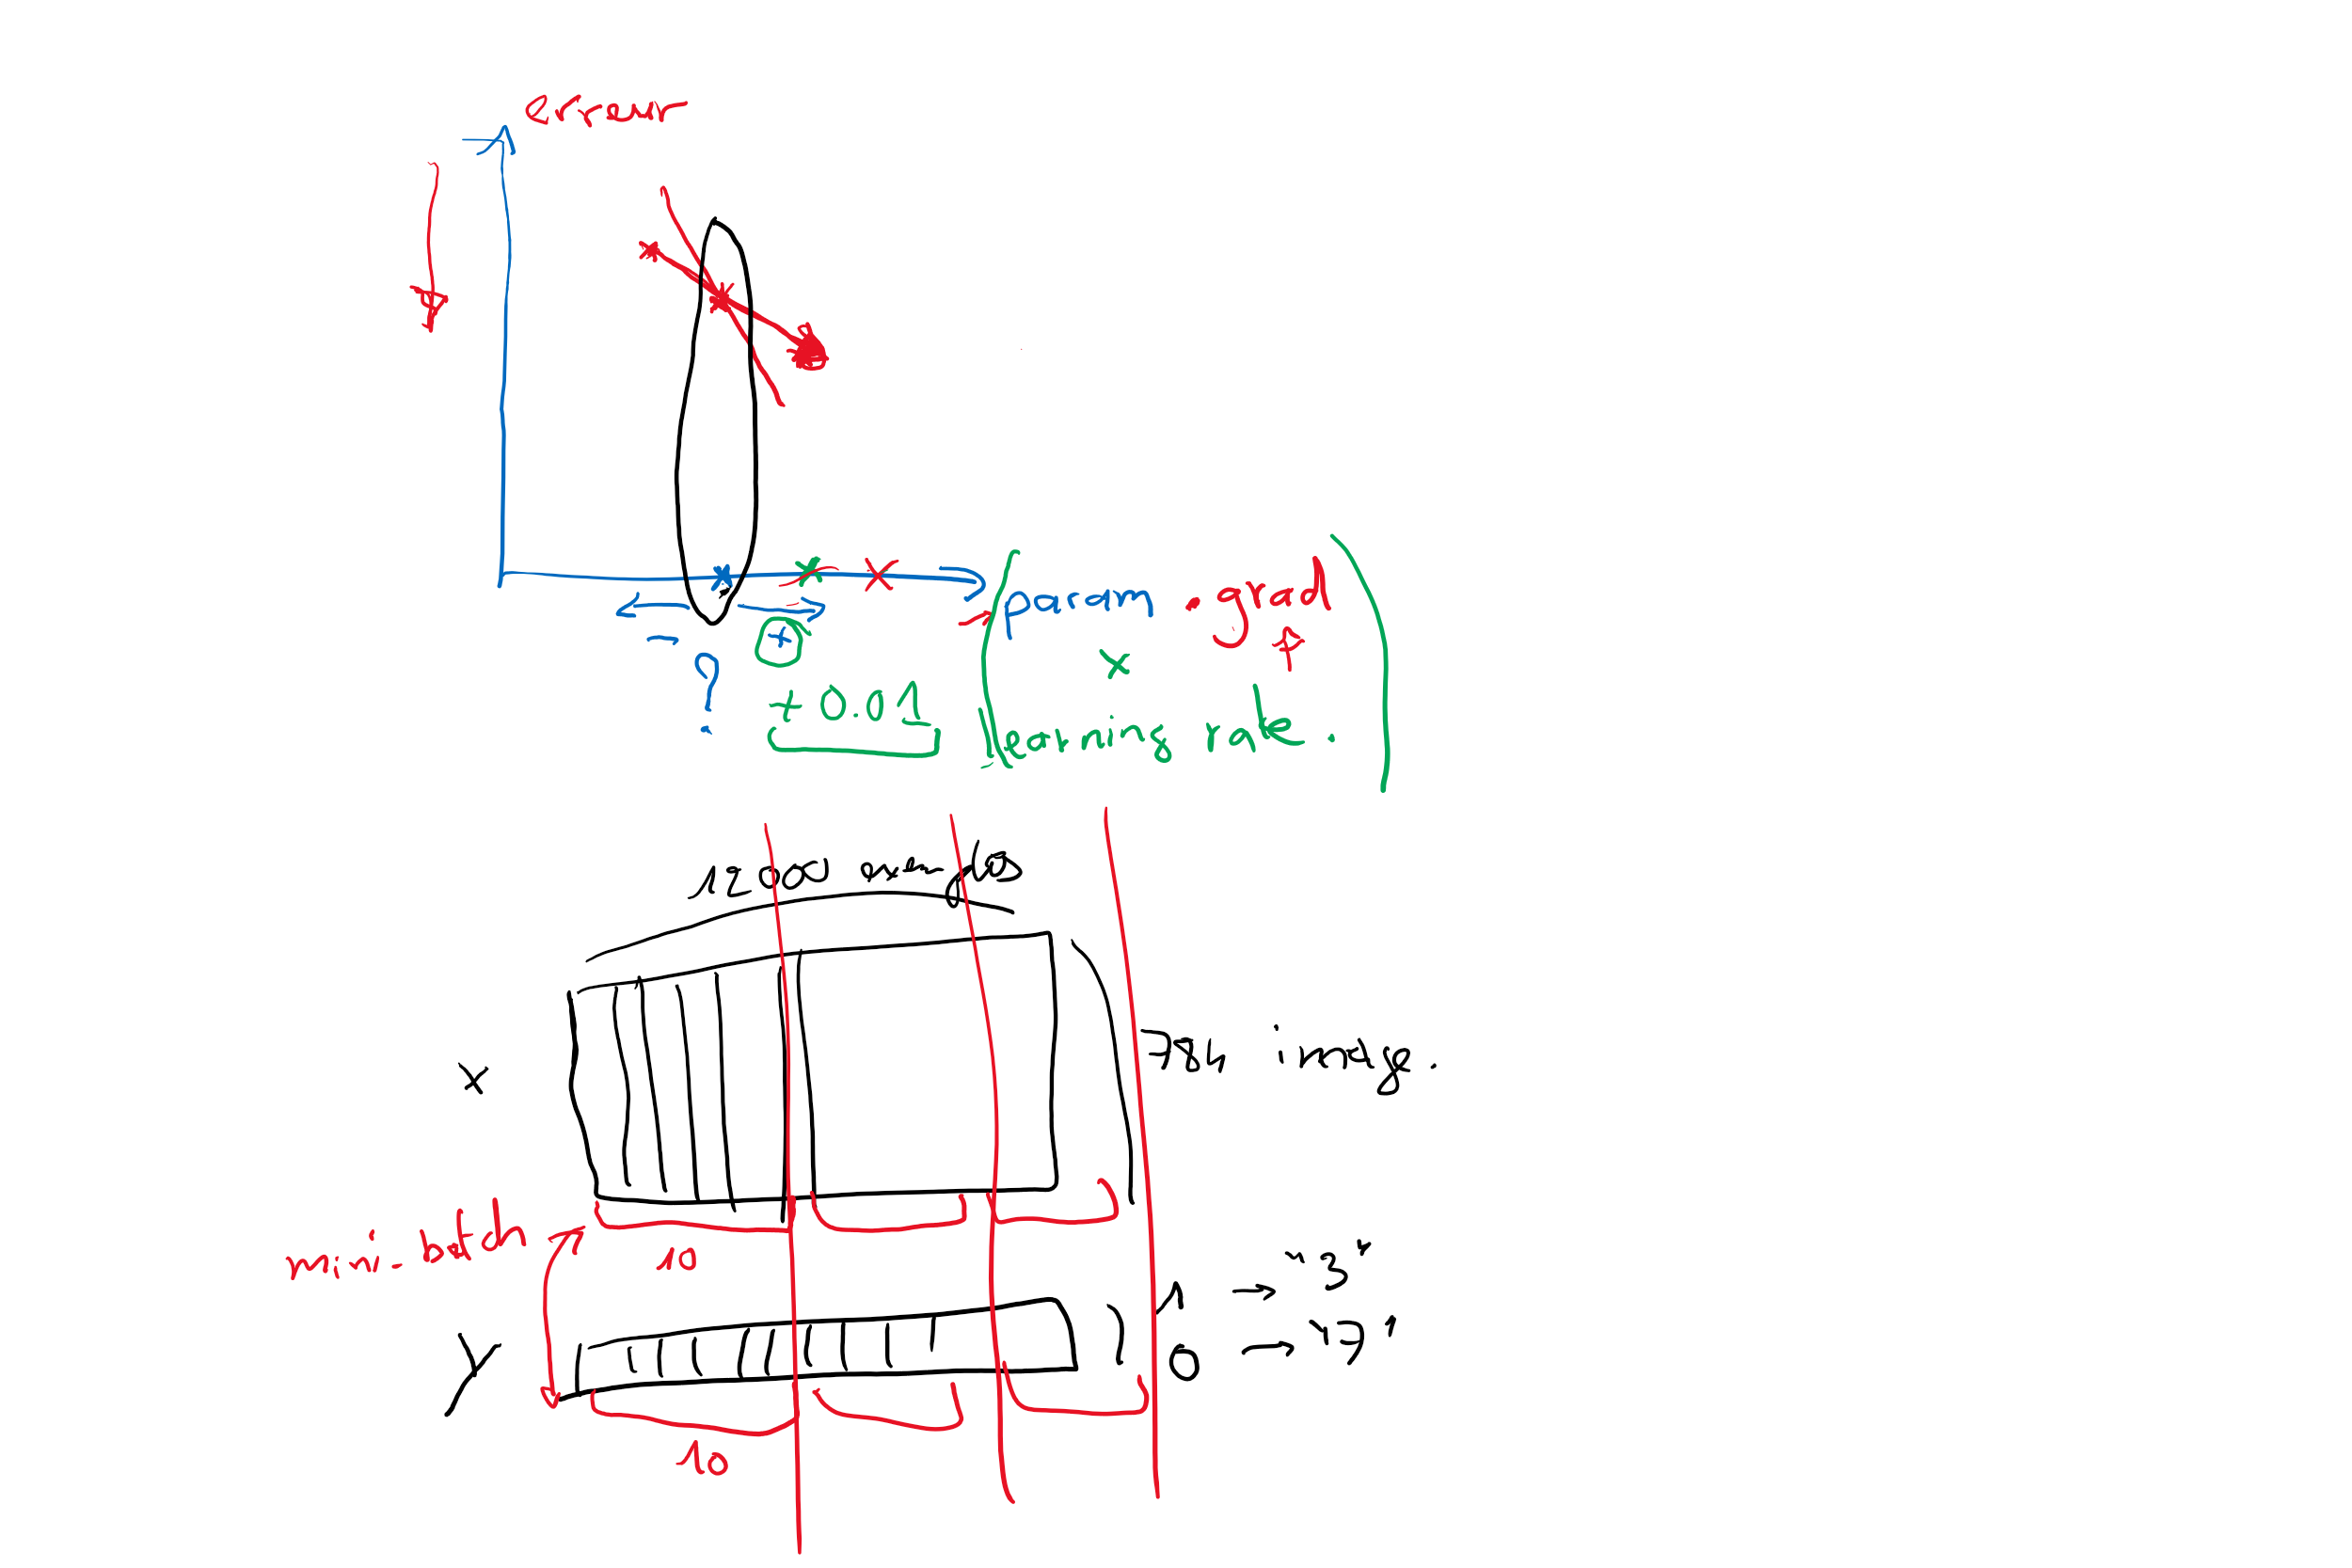 erreur
param . grad
- + +
? x
+ 0.01 learning rate .
12 000 exemples
x
784 image .
mini-batch
10
1 → "3"
y
0 → "7"
10